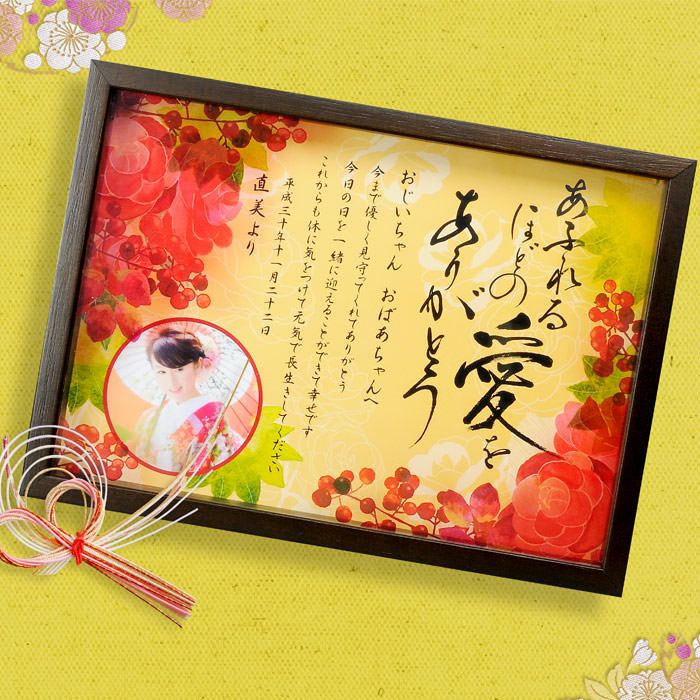 あふれる
ほどの愛を
ありがとう
おじいちゃん おばあちゃんへ
今まで優しく見守ってくれてありがとう
今日の日を一緒に迎えることができて幸せです
これからも体に気をつけて元気で長生きしてください
平成三十年十一月二十二日
直美より